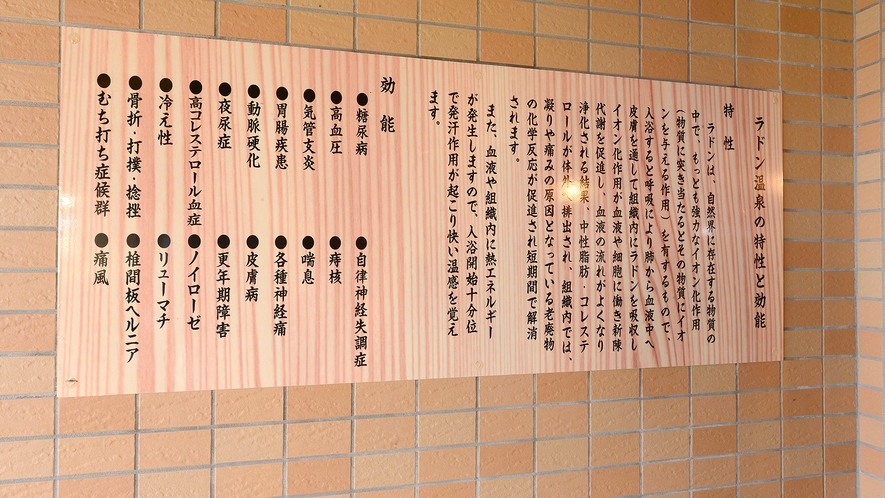 ラドン温泉の特性と効能
特性
ラドンは、自然界に存在する物質の
中で、もっとも強力なイオン化作用
(物質に突き当たるとその物質にイオ
ンを与える作用)を有するもので、
入浴すると呼吸により肺から血液中へ
皮膚を通して組織内にラドンを吸収し
イオン化作用が血液や細胞に働き新陳
代謝を促進し、血液の流れがよくなり
浄化される結果、中性脂肪・コレステ
ロールが体外へ排出され、組織内では、
凝りや痛みの原因となっている老廃物
の化学反応が促進され短期間で解消
されます。
また、血液や組織内に熱エネルギー
が発生しますので、入浴開始十分位
で発汗作用が起こり快い温感を覚え
ます。
効能
●糖尿病 ●自律神経失調症
●高血圧 ●痔核
●気管支炎 ●喘息
●胃腸疾患 ●各種神経痛
●動脈硬化 ●皮膚病
●夜尿症 ●更年期障害
●高コレステロール血症 ●ノイローゼ
●冷え性 ●リューマチ
●骨折・打撲・捻挫 ●椎間板ヘルニア
●むち打ち症候群 ●痛風